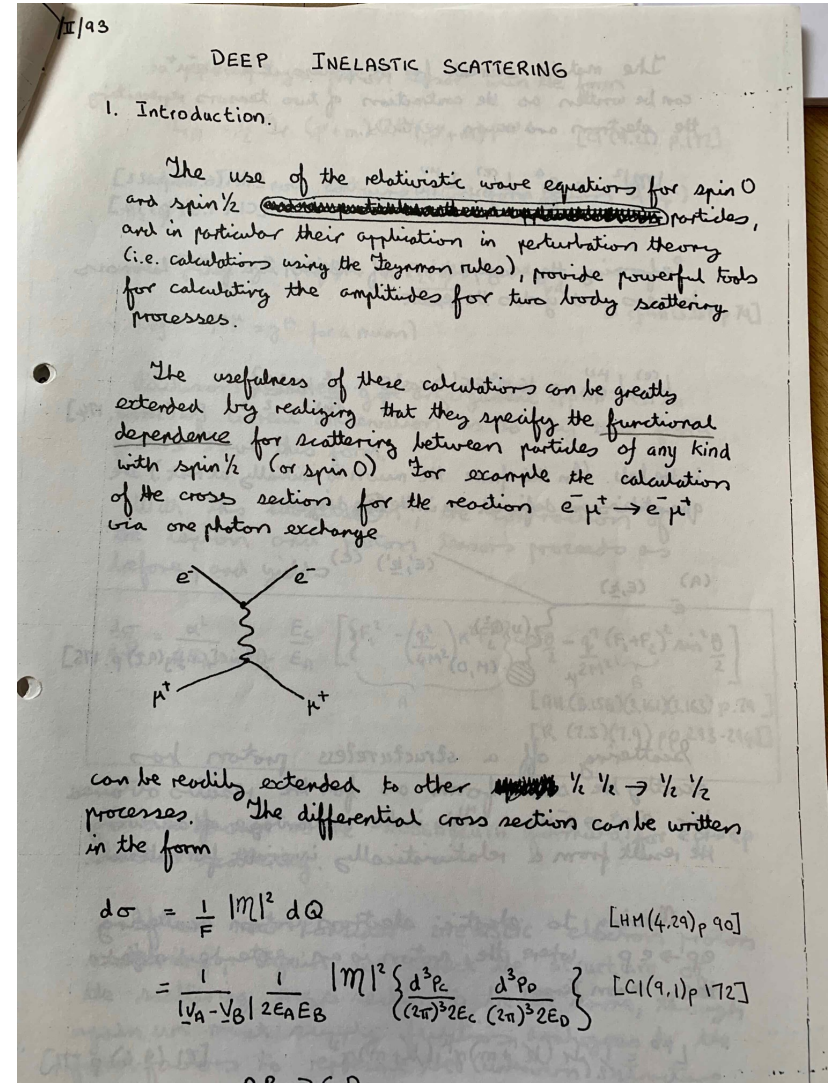 /II/93
DEEP INELASTIC SCATTERING
1. Introduction.
The use of the relativistic wave equations for spin 0
and spin 1/2 particles,
and in particular their application in perturbation theory
(i.e. calculations using the Feynman rules), provide powerful tools
for calculating the amplitudes for two body scattering
processes.
The usefulness of these calculations can be greatly
extended by realizing that they specify the functional
dependence for scattering between particles of any kind
with spin 1/2 (or spin 0) For example the calculation
of the cross section for the reaction e⁻ μ⁺ → e⁻ μ⁺
via one photon exchange
e⁻ e⁻
μ⁺ μ⁺
can be readily extended to other 1/2 1/2 → 1/2 1/2
processes. The differential cross section can be written
in the form
dσ = 1/F |M|² dQ [HM(4,29)p 90]
= 1/|V_A - V_B| 1/2E_A E_B |M|² { d³p_C/(2π)³2E_C d³p_D/(2π)³2E_D } [C1(9,1)p 172]